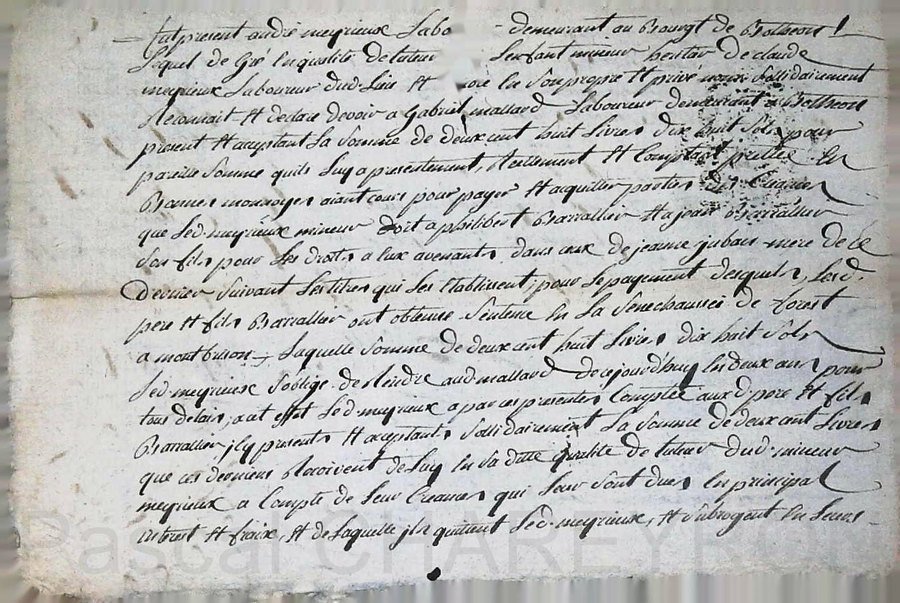 fut present andré meyrieux Labo demeurant au Bourgt de
Lequel de Gré En qualité de tuteur Lenfant mineur heritier de claude
meyrieux Laboureur dud Lieu Et En Son propre Et privé nom Sollidairement
Reconnait Et declare devoir a Gabriel mallard Laboureur demeurant a
present Et acceptant La Somme de deux cent huit Livres dix huit Sols pour
pareille Somme quils Luy a presentement, Reellement Et Comptant prettée En
Bonnes monnoyes aiant cours pour payer Et acquitter partie des Creances
que Led meyrieux mineur doit a philibert Barrallier Et a jean Barrallier
Son fils pour Les droits a Eux avenants dans ceux de jeanne jubain mere de Ce
dernier Suivant Les titres qui Les Etablissent pour Le payement desquels, Lesd.
pere Et fils Barrallier ont obtenu Sentence En La Senechaussée de forest
a montbrison, Laquelle Somme de deux cent huit Livres dix huit Sols
Led. meyrieux S'oblige de Rendre aud mallard de ce jourd'huy En deux ans pour
tous delais, a cet effet Led. meyrieux a par ces presentes Comptée auxd. pere Et fils
Barrallier icy presents Et acceptants Sollidairement La Somme de deux cent Livres
que ces derniers Recoivent de Luy En Sa ditte qualité de tuteur dud. mineur
meyrieux a Compte de Leur Creances qui Leur Sont dues En principal
interest Et fraix, Et de Laquelle ils quittent Led. meyrieux, Et Subrogent En Leurs
Pascal CHAREYRON